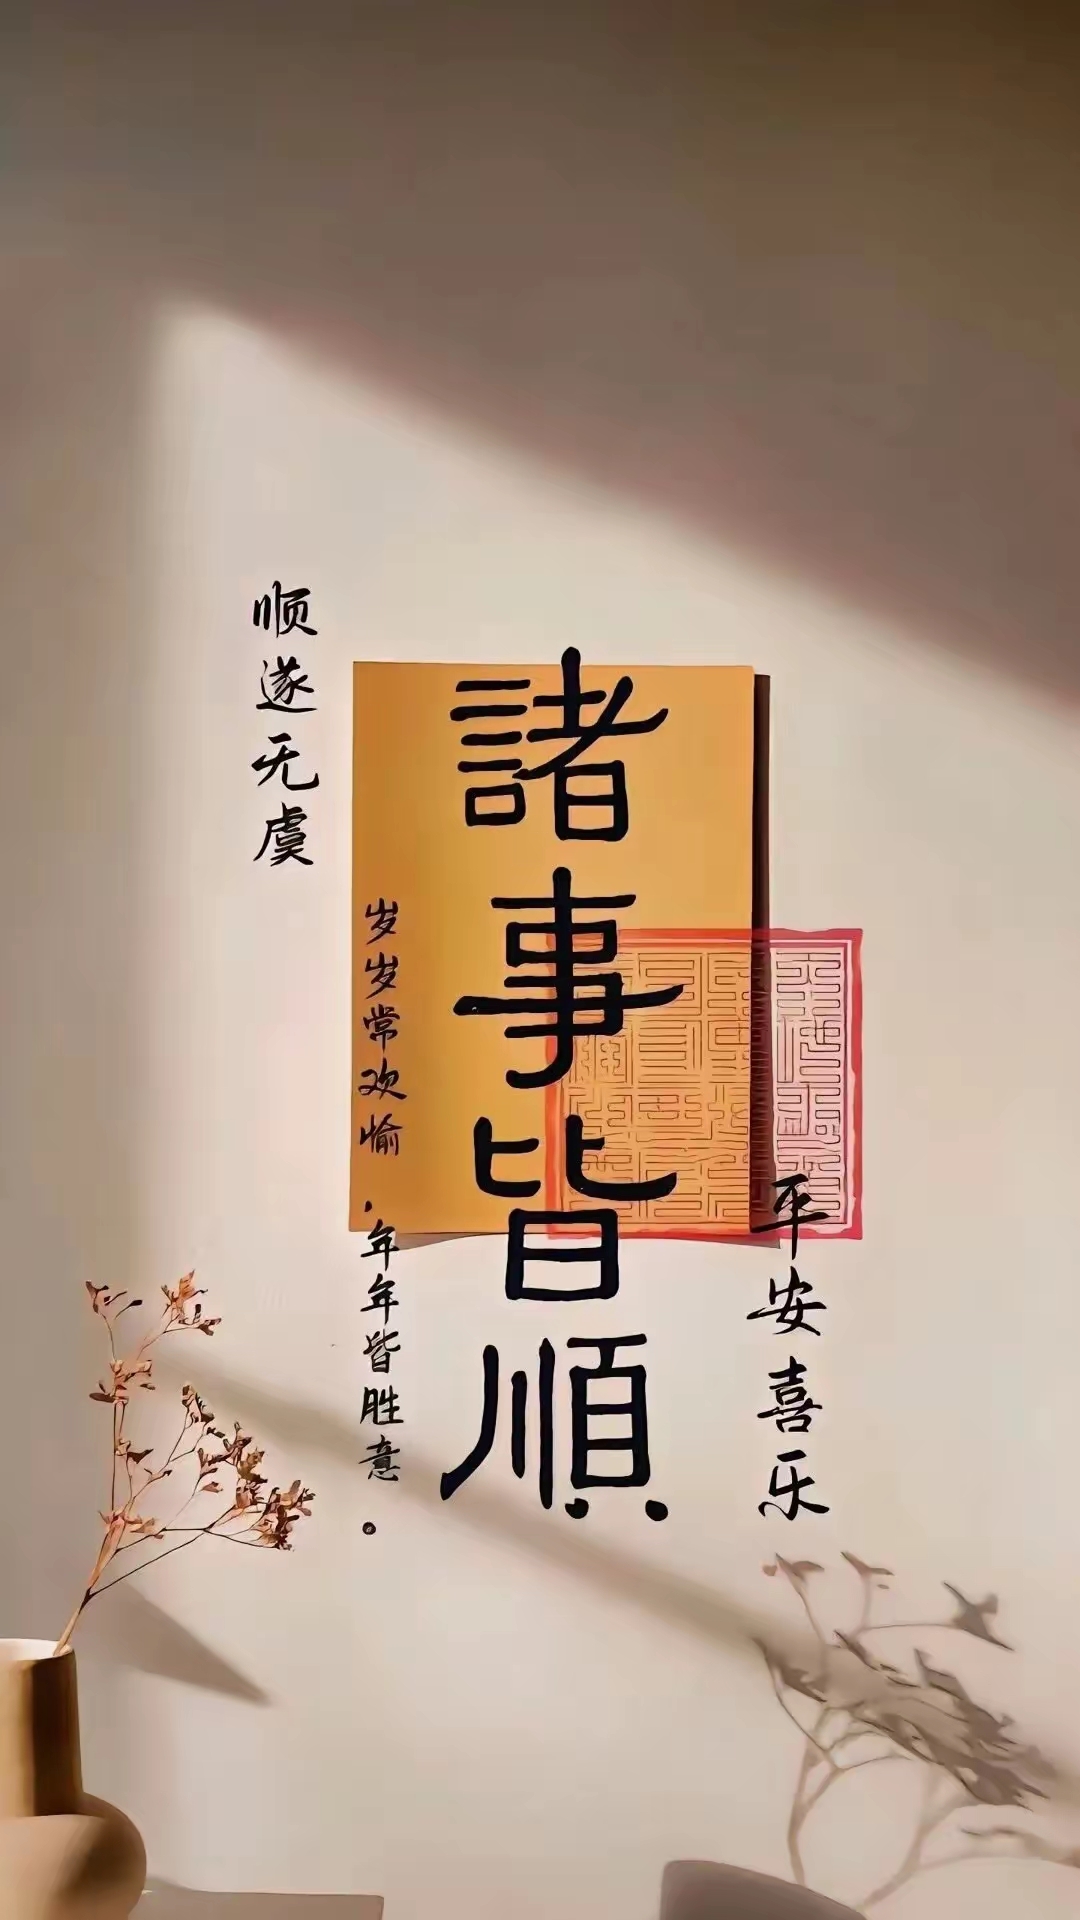 諸事皆順
平安喜乐
顺遂无虞
岁岁常欢愉，年年皆胜意。